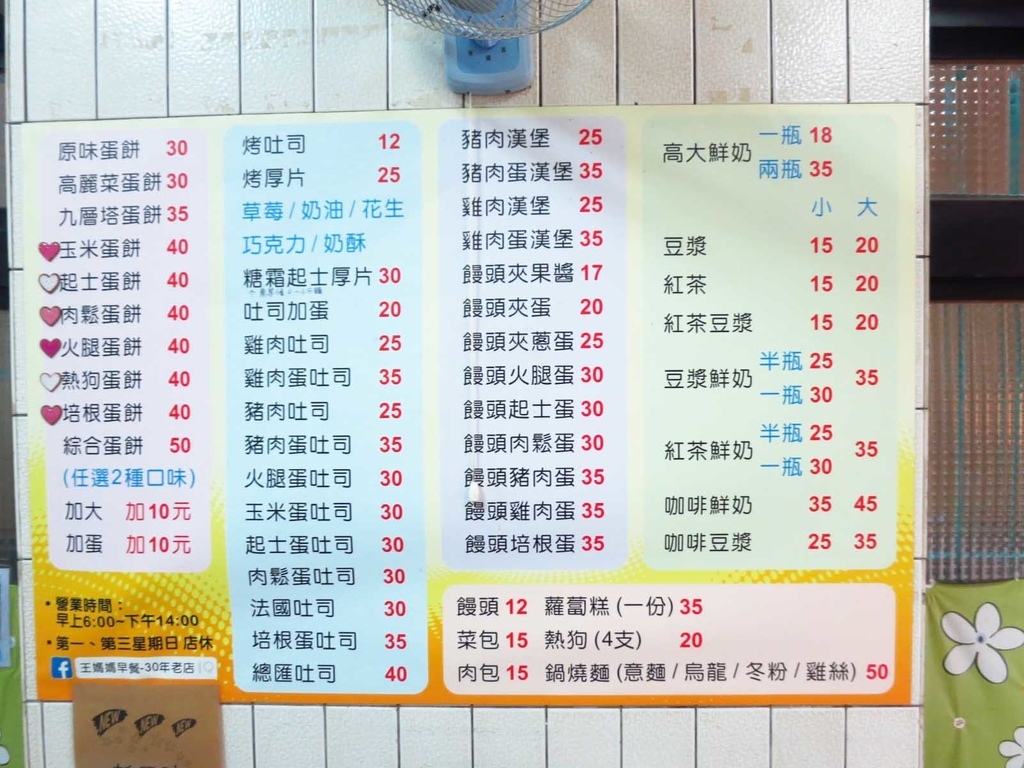 原味蛋餅 30
高麗菜蛋餅 30
九層塔蛋餅 35
玉米蛋餅 40
起士蛋餅 40
肉鬆蛋餅 40
火腿蛋餅 40
熱狗蛋餅 40
培根蛋餅 40
綜合蛋餅 50
(任選2種口味)
加大 加10元
加蛋 加10元
• 營業時間：
早上6:00~下午14:00
• 第一、第三星期日 店休
王媽媽早餐-30年老店
NEW NEW NEW
烤吐司 12
烤厚片 25
草莓 / 奶油 / 花生
巧克力 / 奶酥
糖霜起士厚片 30
吐司加蛋 20
雞肉吐司 25
雞肉蛋吐司 35
豬肉吐司 25
豬肉蛋吐司 35
火腿蛋吐司 30
玉米蛋吐司 30
起士蛋吐司 30
肉鬆蛋吐司 30
法國吐司 30
培根蛋吐司 35
總匯吐司 40
豬肉漢堡 25
豬肉蛋漢堡 35
雞肉漢堡 25
雞肉蛋漢堡 35
饅頭夾果醬 17
饅頭夾蛋 20
饅頭夾蔥蛋 25
饅頭火腿蛋 30
饅頭起士蛋 30
饅頭肉鬆蛋 30
饅頭豬肉蛋 35
饅頭雞肉蛋 35
饅頭培根蛋 35
高大鮮奶 一瓶 18
兩瓶 35
小 大
豆漿 15 20
紅茶 15 20
紅茶豆漿 15 20
豆漿鮮奶 半瓶 25 35
一瓶 30
紅茶鮮奶 半瓶 25 35
一瓶 30
咖啡鮮奶 35 45
咖啡豆漿 25 35
饅頭 12 蘿蔔糕 (一份) 35
菜包 15 熱狗 (4支) 20
肉包 15 鍋燒麵 (意麵 / 烏龍 / 冬粉 / 雞絲) 50